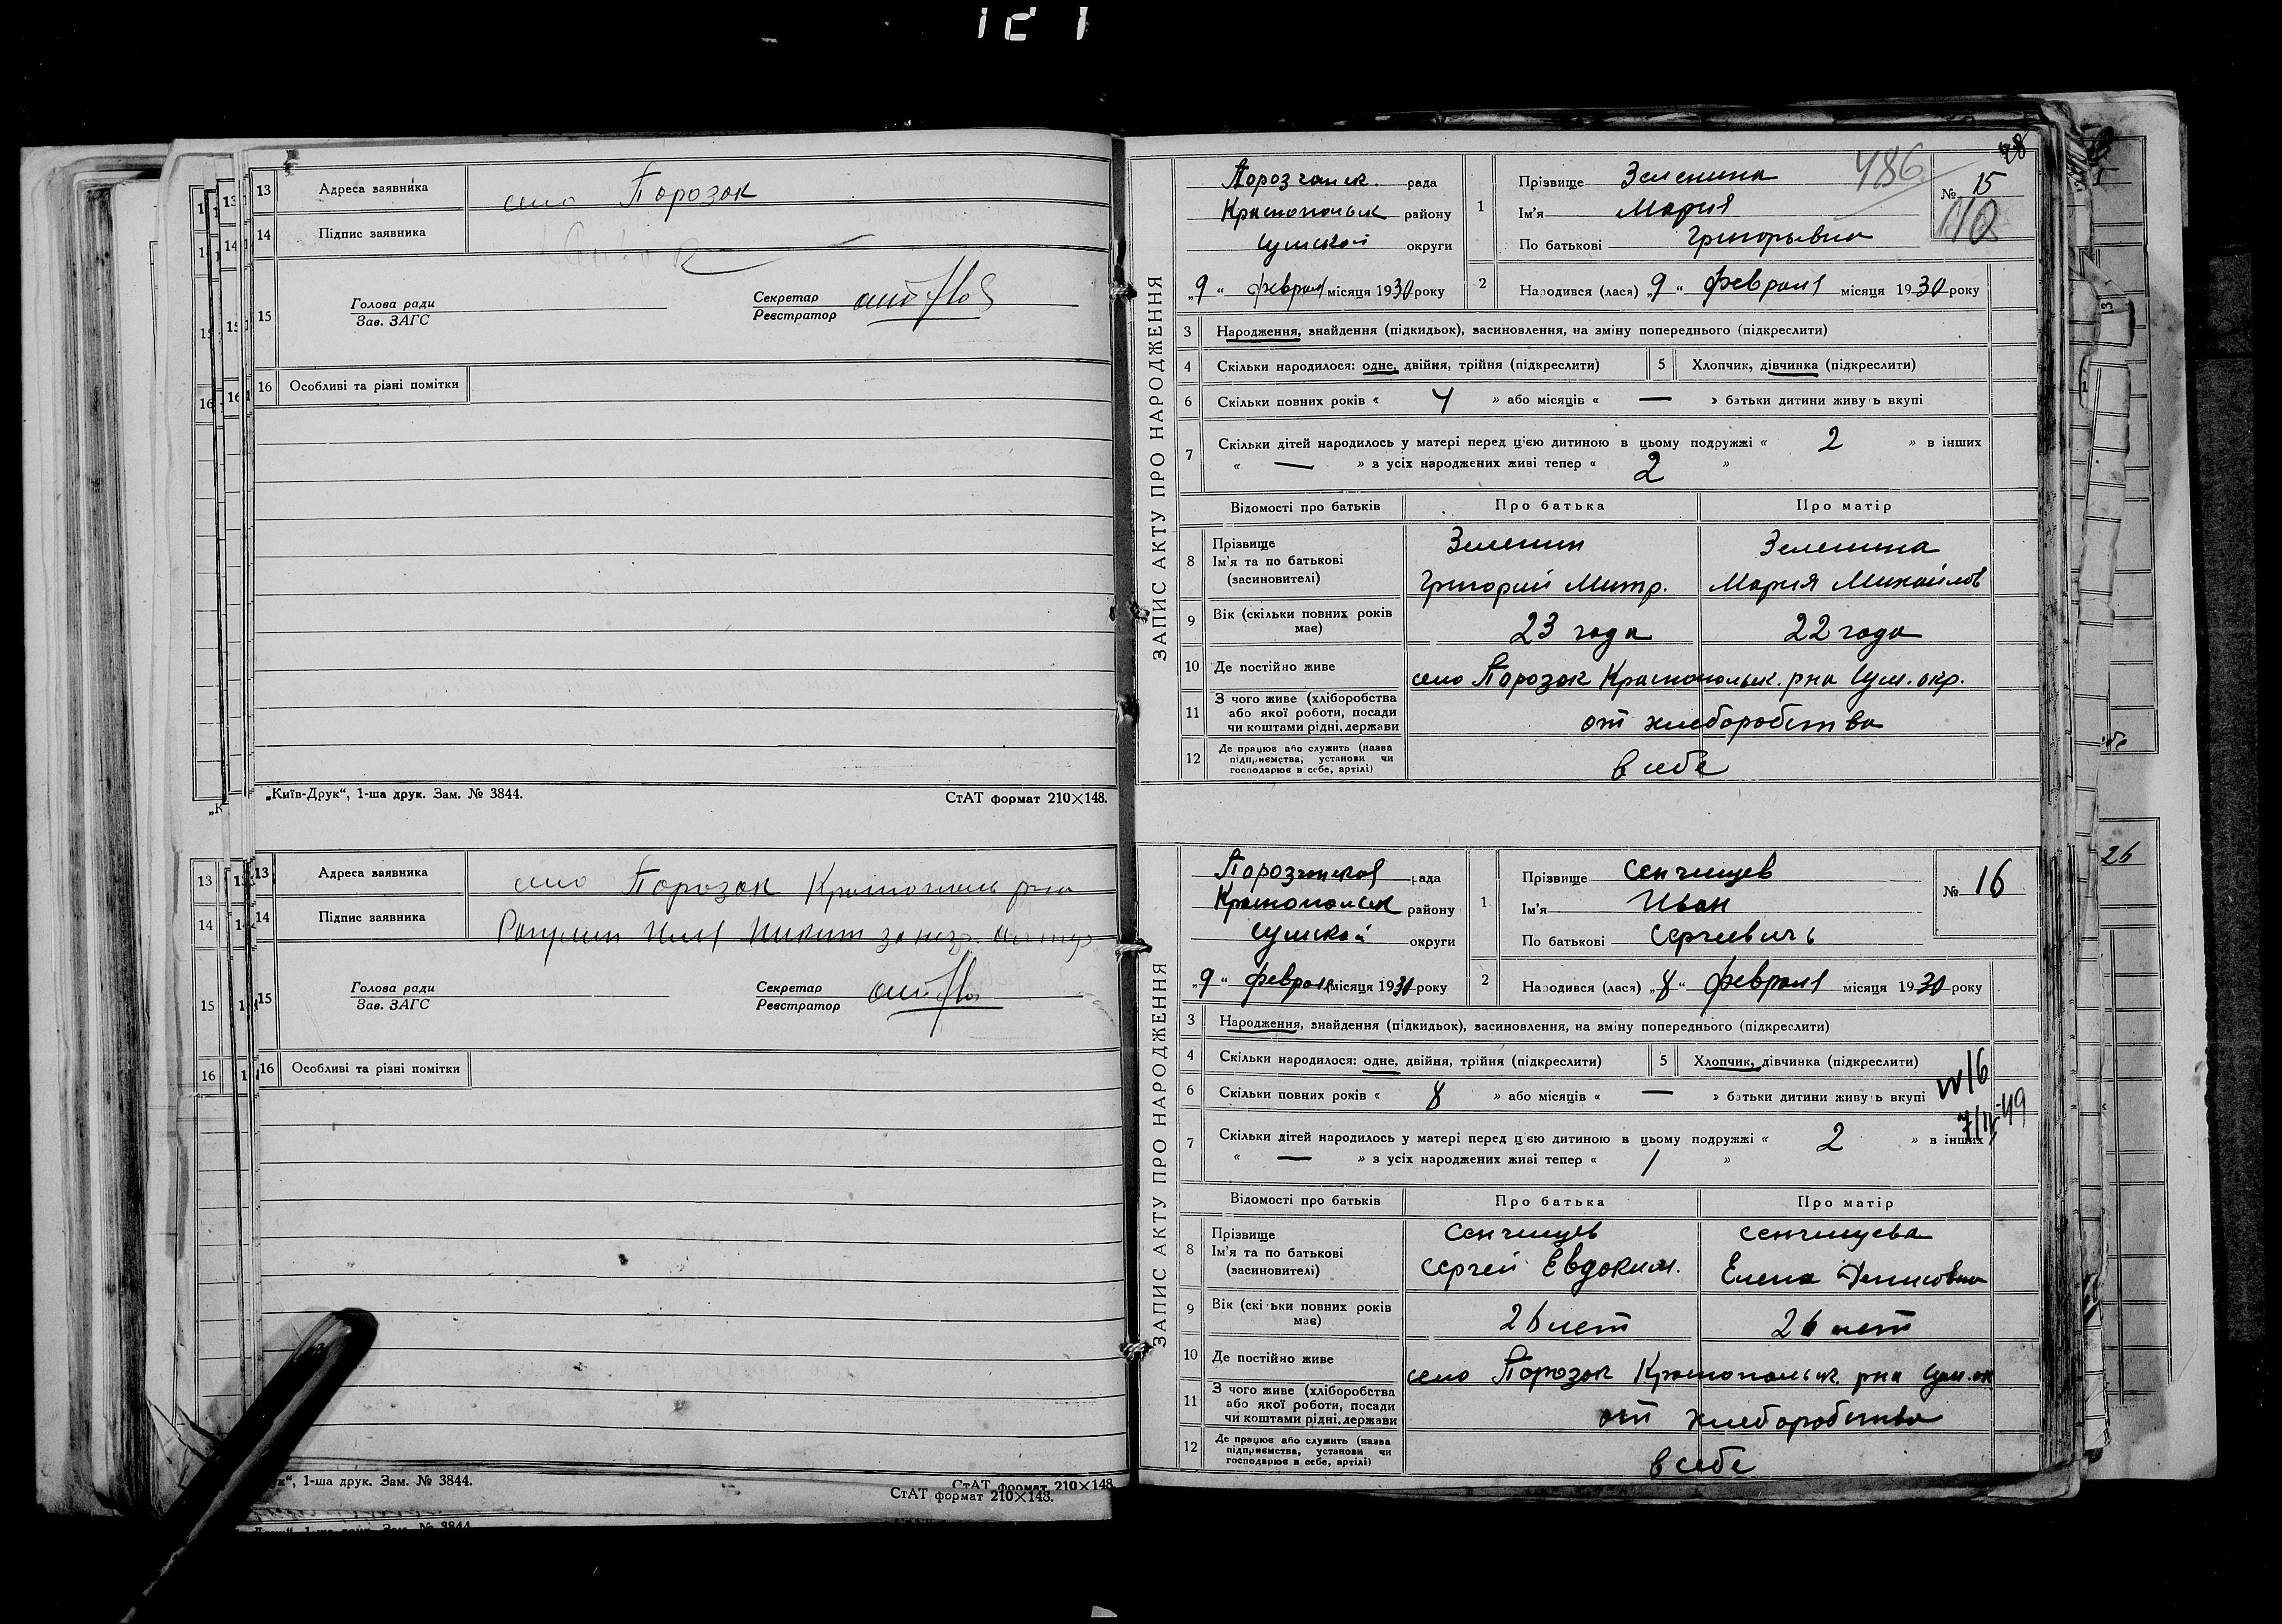 121
13 Адреса заявника село Порозок
14 Підпис заявника
15 Голова ради
Зав. ЗАГС
Секретар
Реєстратор
16 Особливі та різні помітки
„Київ-Друк“, 1-ша друк. Зам. № 3844.
СтАТ формат 210×148.
13 Адреса заявника село Порозок Краснополь рна
14 Підпис заявника
15 Голова ради
Зав. ЗАГС
Секретар
Реєстратор
16 Особливі та різні помітки
1-ша друк. Зам. № 3844.
СтАТ формат 210×148
СтАТ формат 210×148.
48
ЗАПИС АКТУ ПРО НАРОДЖЕННЯ
Порозчанск. рада
Краснопольск району
Сумской округи
„9“ февраля місяця 1930 року
1 Прізвище Зеленина
Ім'я Мария
По батькові Григорьевна
486
№ 15
110
2 Народився (лася) „9“ февраля місяця 1930 року
3 Народження, знайдення (підкидьок), засиновлення, на зміну попереднього (підкреслити)
4 Скільки народилося: одне, двійня, трійня (підкреслити)
5 Хлопчик, дівчинка (підкреслити)
6 Скільки повних років « 4 » або місяців « — » батьки дитини живуть вкупі
7 Скільки дітей народилось у матері перед цією дитиною в цьому подружжі « 2 » в інших
« — » з усіх народжених живі тепер « 2 »
Відомості про батьків Про батька Про матір
8 Прізвище Зеленин Зеленина
Ім'я та по батькові
(засиновителі) Григорий Митр. Мария Михайлов
9 Вік (скільки повних років
має) 23 года 22 года
10 Де постійно живе село Порозок Краснопольск. рна Сум. окр.
11 З чого живе (хліборобства
або якої роботи, посади
чи коштами рідні, держави от хлеборобства
12 Де працює або служить (назва
підприємства, установи чи
господарює в себе, артілі) в себе
ЗАПИС АКТУ ПРО НАРОДЖЕННЯ
Порозчанской рада
Краснопольск району
Сумской округи
„9“ февраля місяця 1930 року
1 Прізвище Сенчищев
Ім'я Иван
По батькові Сергеевичь
№ 16
2 Народився (лася) „8“ февраля місяця 1930 року
3 Народження, знайдення (підкидьок), засиновлення, на зміну попереднього (підкреслити)
4 Скільки народилося: одне, двійня, трійня (підкреслити)
5 Хлопчик, дівчинка (підкреслити)
6 Скільки повних років « 8 » або місяців « — » батьки дитини живуть вкупі
7 Скільки дітей народилось у матері перед цією дитиною в цьому подружжі « 2 » в інших
« — » з усіх народжених живі тепер « 1 »
Відомості про батьків Про батька Про матір
8 Прізвище Сенчищев Сенчищева
Ім'я та по батькові
(засиновителі) Сергей Евдоким. Елена Денисовна
9 Вік (скільки повних років
має) 26 лет 26 лет
10 Де постійно живе село Порозок Краснопольск. рна Сум. ок
11 З чого живе (хліборобства
або якої роботи, посади
чи коштами рідні, держави от хлеборобства
12 Де працює або служить (назва
підприємства, установи чи
господарює в себе, артілі) в себе
26